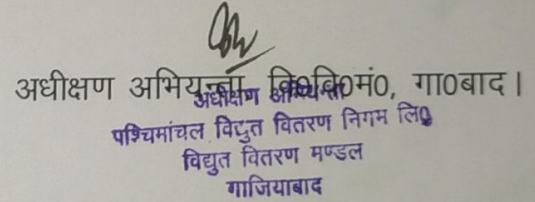 अधीक्षण अभियन्ता, वि०वि०मं०, गा०बाद।
अधीक्षण अभियन्ता
पश्चिमांचल विद्युत वितरण निगम लि०
विद्युत वितरण मण्डल
गाजियाबाद